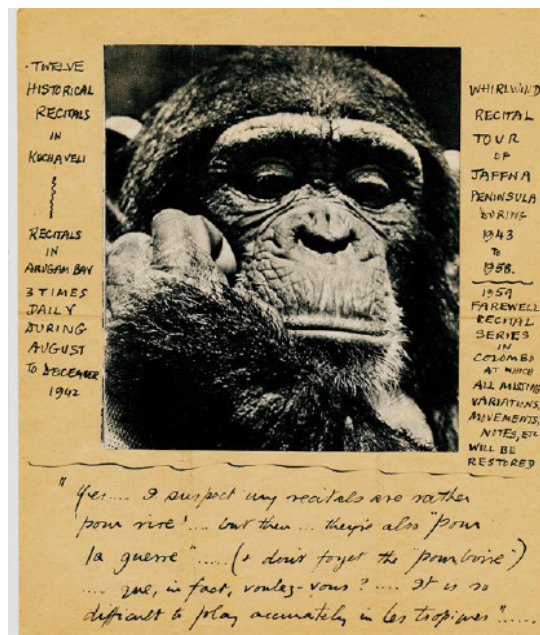 · TWELVE
HISTORICAL
RECITALS
IN
KUCHAVELI
RECITALS
IN
ARUGAM BAY
3 TIMES
DAILY
DURING
AUGUST
TO DECEMBER
1942
WHIRLWIND
RECITAL
TOUR
OF
JAFFNA
PENINSULA
DURING
1943
TO
1958.
1959
FAREWELL
RECITAL
SERIES
IN
COLOMBO
AT WHICH
ALL MISSING
VARIATIONS,
MOVEMENTS,
NOTES, ETC
WILL BE
RESTORED
"Yes.... I suspect my recitals are rather
pour rire'.... but then... they're also "pour
la guerre" ..... (& don't forget the "pourboire")
.... que, in fact, voulez-vous? .... It is so
difficult to play accurately in les tropiques" .....